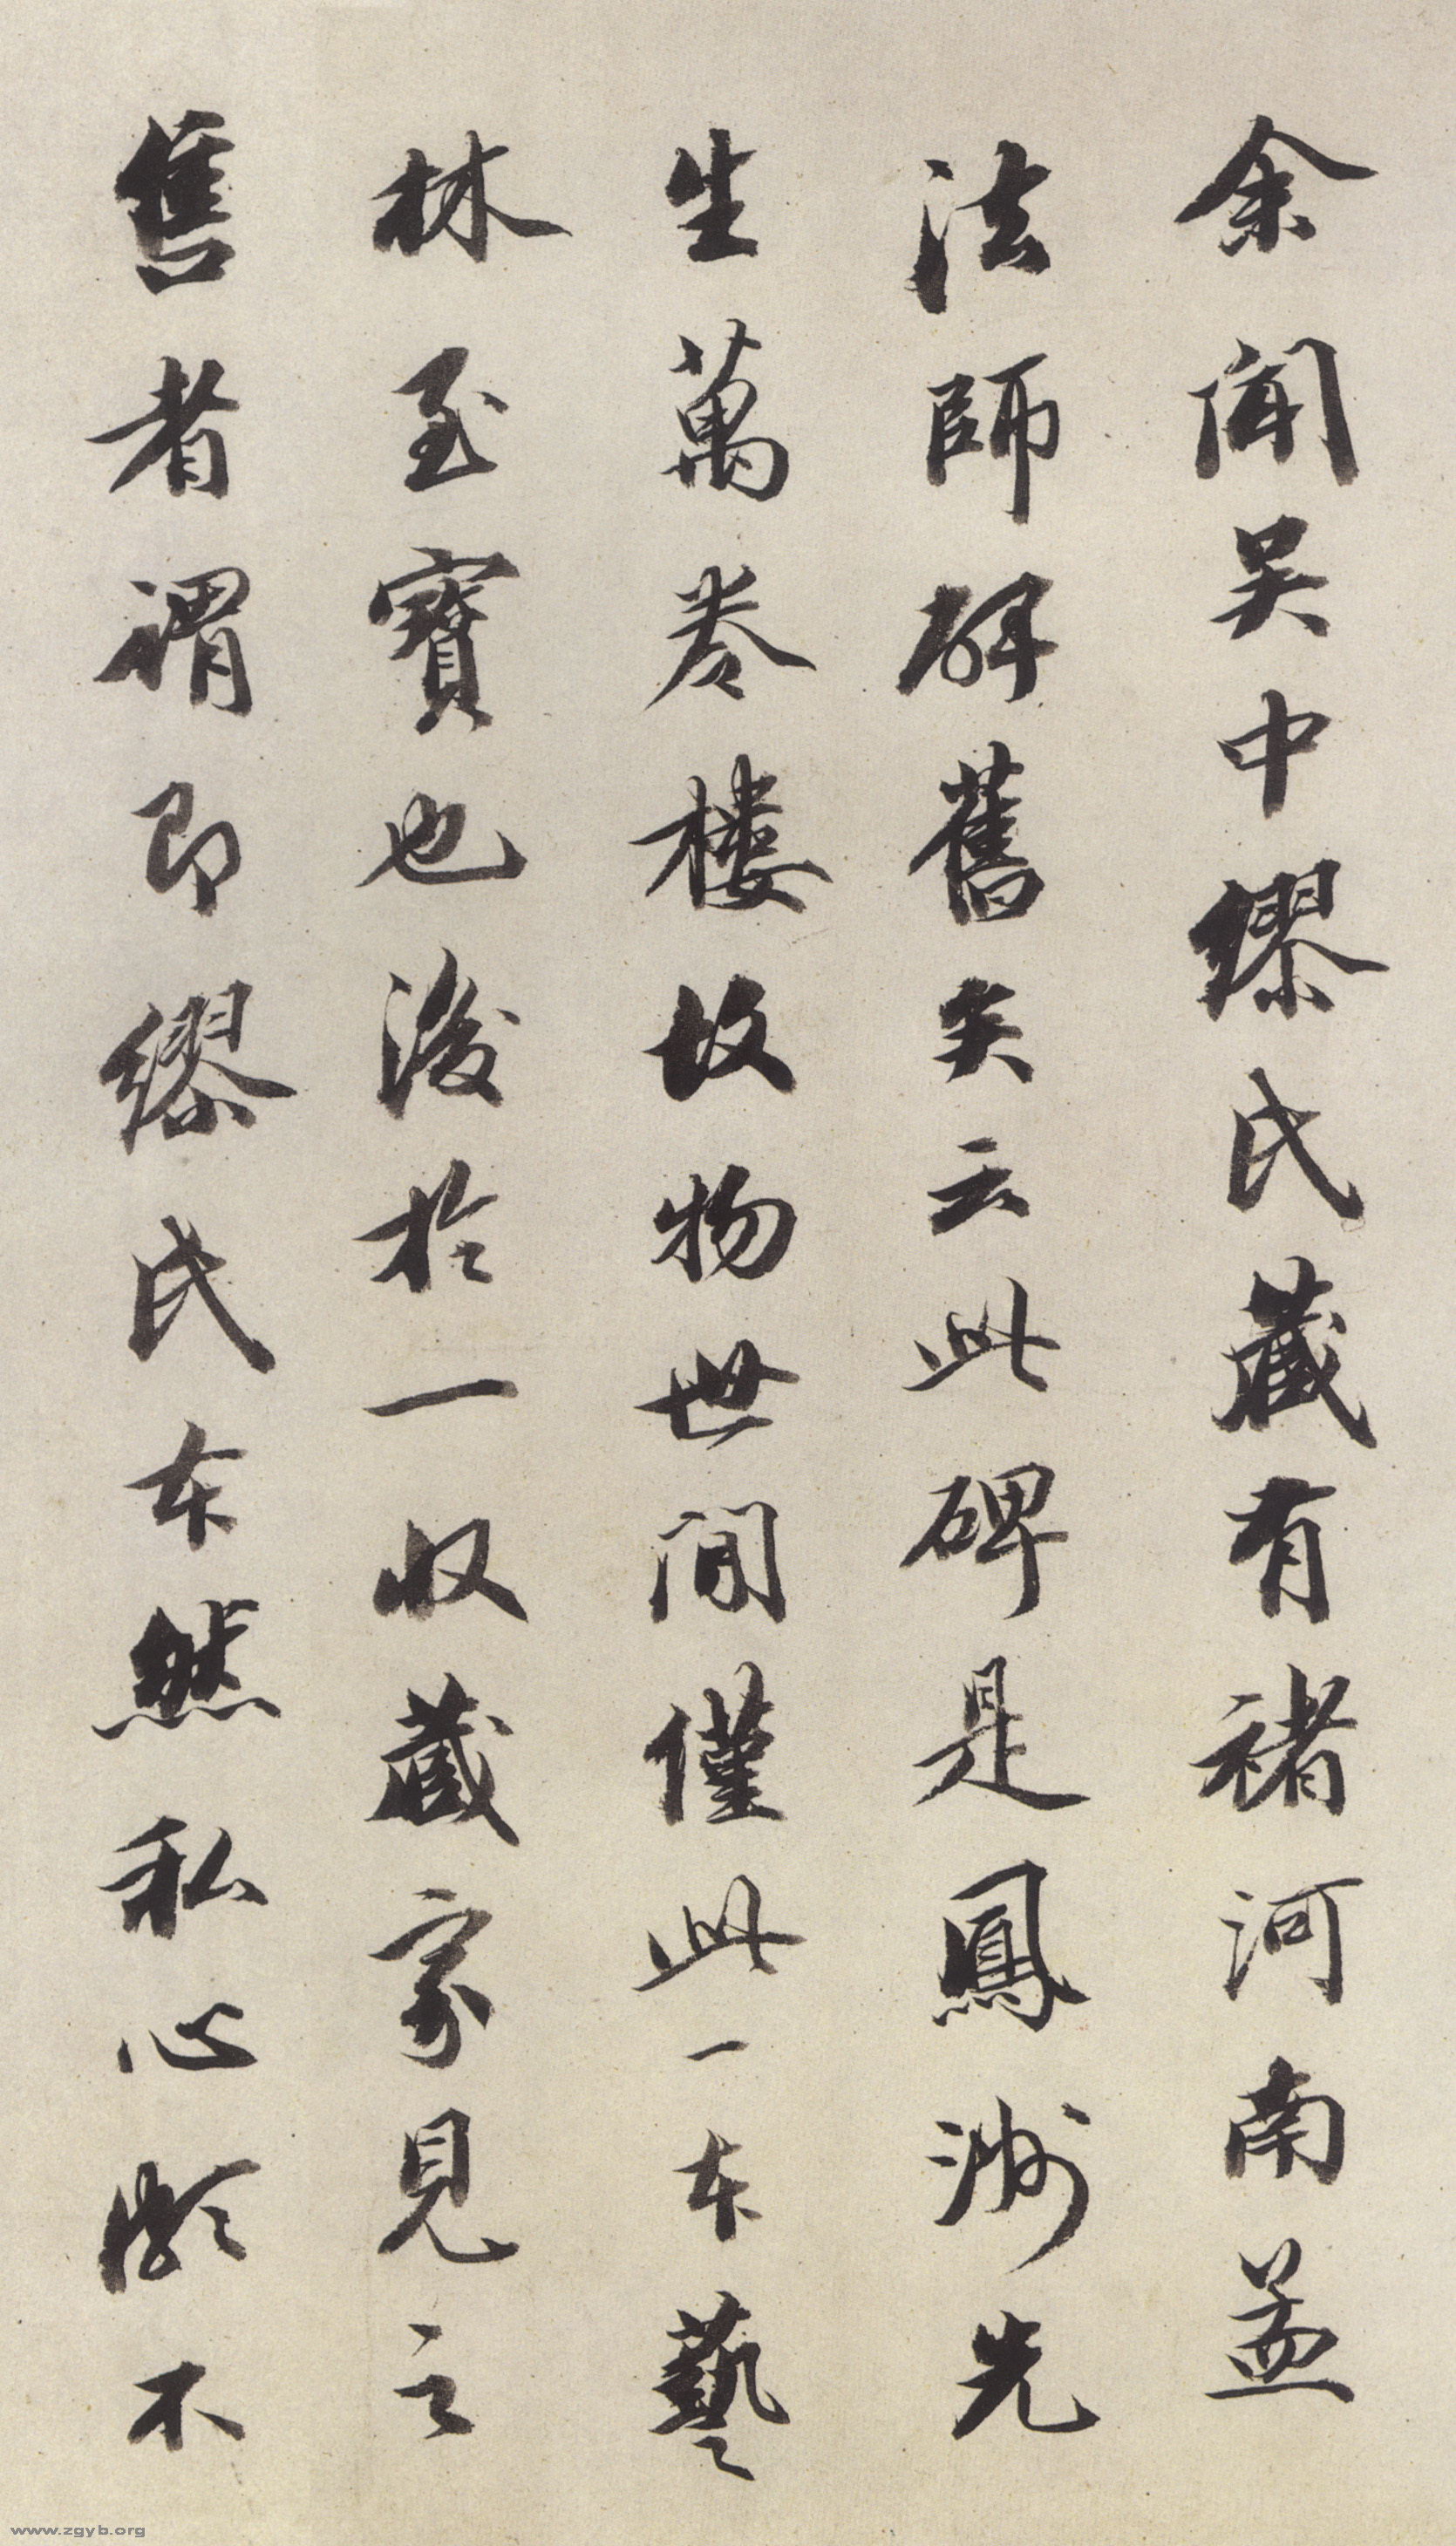 余聞吳中繆氏藏有褚河南孟
法師碑舊矣云此碑是鳳洲先
生萬卷樓故物世間僅此一本藝
林至寶也後於一收藏家見之
售者謂即繆氏本然私心疑不
www.zgyb.org